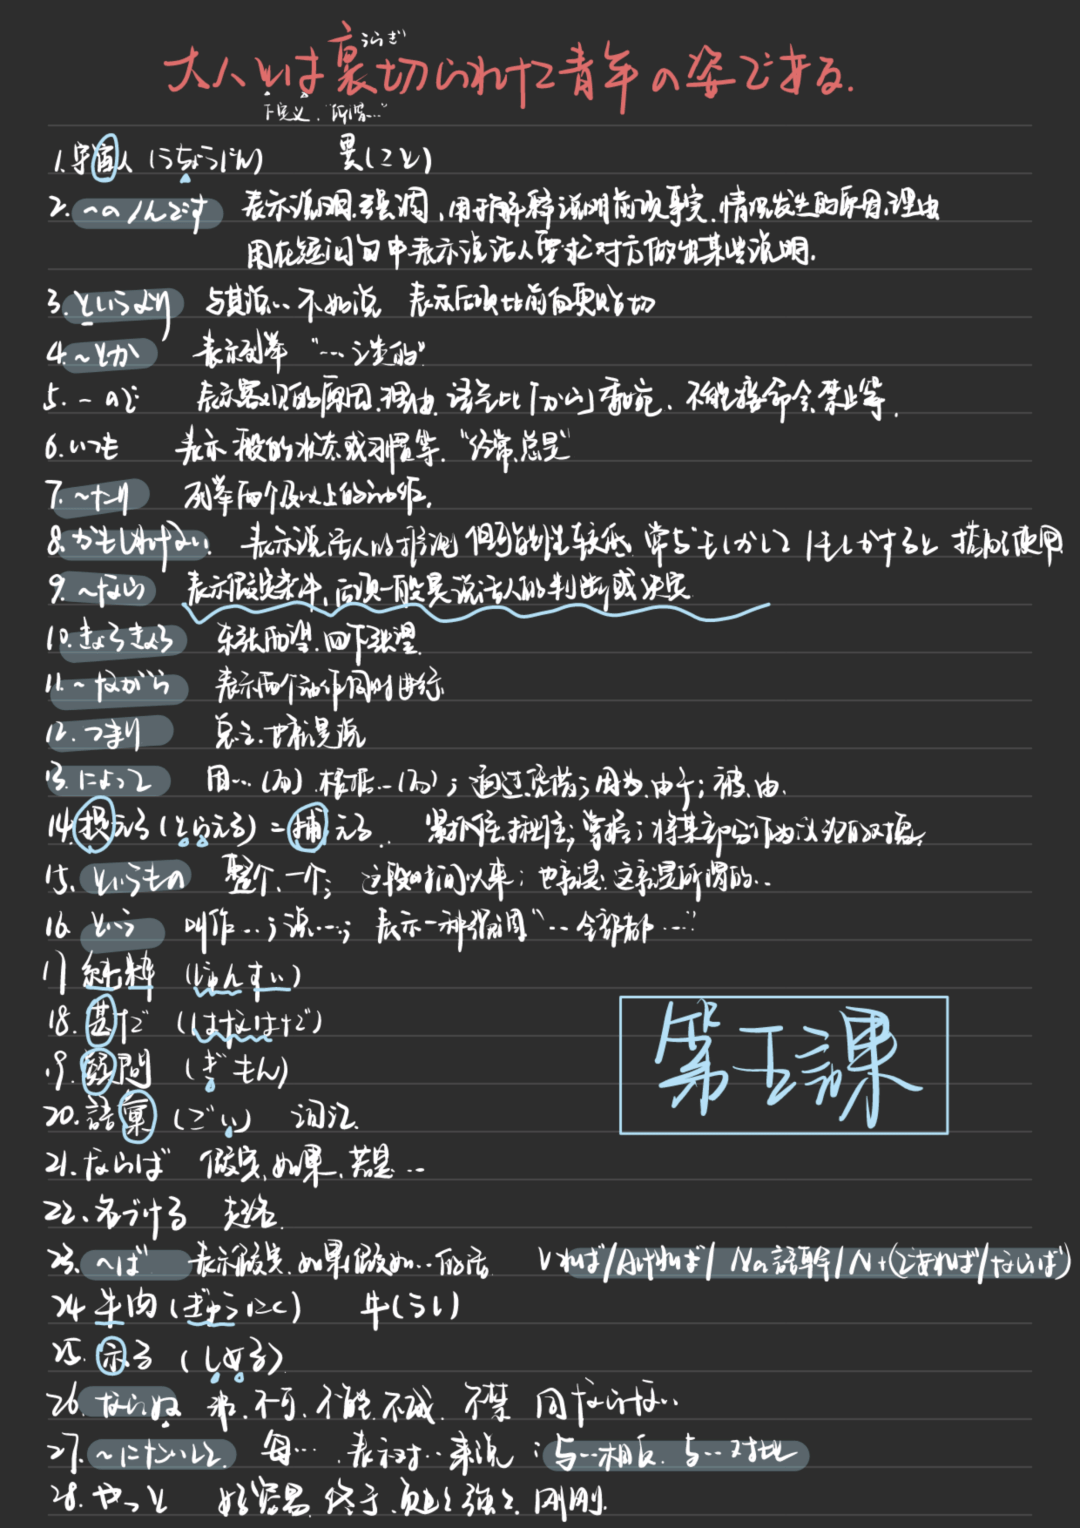 うらぎ
大人とは裏切られた青年の姿である.
下定义."所谓…"
1.宇宙人(うちゅうじん) 異(こと)
2.~のんです 表示说明.强调,用于解释说明前项事实.情况发生的原因.理由
用在疑问句中表示说话人要求对方做出某些说明.
3.というより 与其说…不如说 表示后项比前面更贴切
4.~とか 表示列举 "…之类的"
5.~ので 表示客观的原因.理由.语气比「から」委婉.不能接命令.禁止等.
6.いつも 表示一般的状态或习惯等."经常.总是"
7.~たり 列举两个及以上的动作.
8.かもしれない. 表示说话人的推测 但可能性较低.常与もしかして/もしかすると 搭配使用
9.~なら 表示假定条件,后项一般是说话人的判断或决定
10.きょろきょろ 东张西望.四下张望
11.~ながら 表示两个动作同时进行
12.つまり 总之.也就是说
13.によって 因…(而) 根据…(而);通过.凭借;因为.由于;被.由.
14.捉える(とらえる)=捕える. 紧抓住.抓住;掌握;将某部分作为认识的对象.
15.というもの 整个.一个; 这段时间以来;也就是.这就是所谓的..
16.という 叫作…;说…; 表示一种强调"…全部都…"
17 純粋 (じゅんすい)
18.甚だ (はなはだ)
19.疑問 (ぎもん)
第五課
20.語彙 (ごい) 词汇.
21.ならば 假定,如果,若是…
22.名づける 起名.
23.~ば 表示假定.如果,假如…的话 Vれば/Aければ/Naの語幹/N+(であれば/ならば)
24 牛肉 (ぎゅうにく) 牛(うし)
25.示る (しめる)
26.ならぬ 非.不可.不能.不成.不禁 同ならない
27.~にたいして 每… 表示对…来说;与…相反.与…对比
28.やっと 好容易.终于.勉勉强强.刚刚.